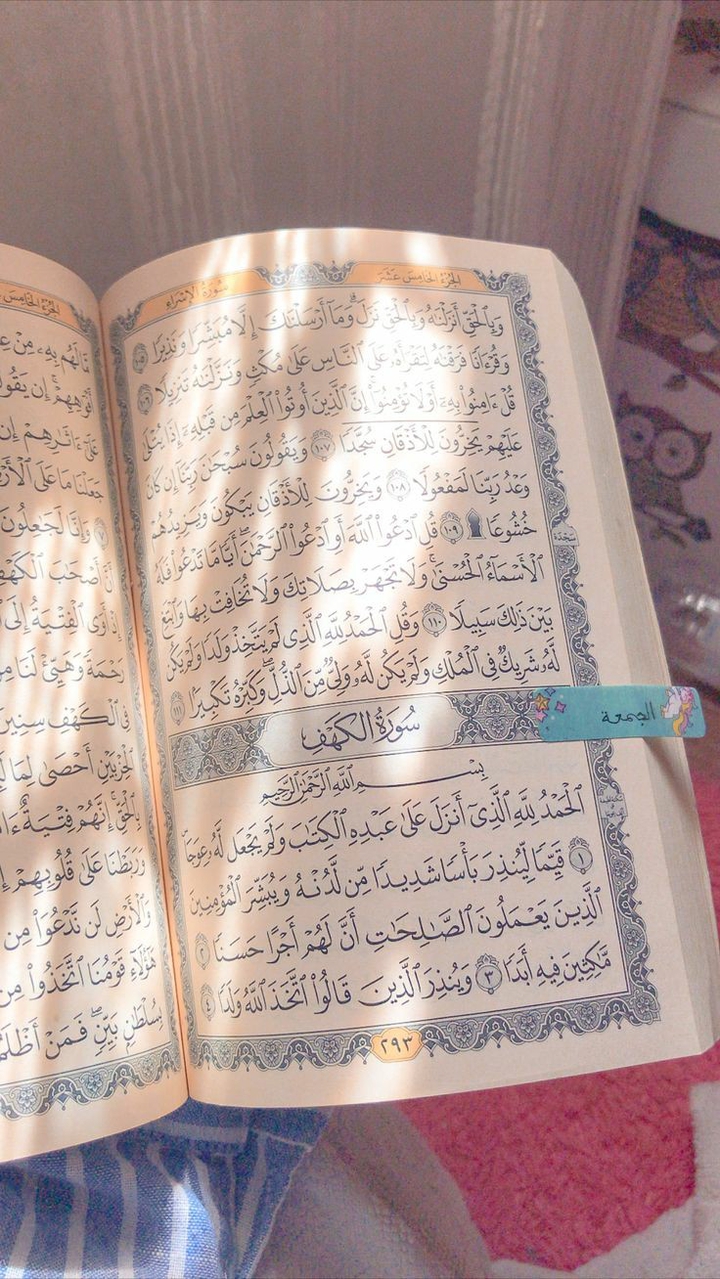 الجُزْءُ الخَامِسَ عَشَرَ
سُورَةُ الإِسْرَاءِ
وَبِٱلْحَقِّ أَنزَلْنَٰهُ وَبِٱلْحَقِّ نَزَلَۗ وَمَآ أَرْسَلْنَٰكَ إِلَّا مُبَشِّرًا وَنَذِيرًا ١٠٥
وَقُرْءَانًا فَرَقْنَٰهُ لِتَقْرَأَهُۥ عَلَى ٱلنَّاسِ عَلَىٰ مُكْثٍ وَنَزَّلْنَٰهُ تَنزِيلًا ١٠٦
قُلْ ءَامِنُوا۟ بِهِۦٓ أَوْ لَا تُؤْمِنُوٓا۟ۚ إِنَّ ٱلَّذِينَ أُوتُوا۟ ٱلْعِلْمَ مِن قَبْلِهِۦٓ إِذَا يُتْلَىٰ
عَلَيْهِمْ يَخِرُّونَ لِلْأَذْقَانِ سُجَّدًا ١٠٧ وَيَقُولُونَ سُبْحَٰنَ رَبِّنَآ إِن كَانَ
وَعْدُ رَبِّنَا لَمَفْعُولًا ١٠٨ وَيَخِرُّونَ لِلْأَذْقَانِ يَبْكُونَ وَيَزِيدُهُمْ
خُشُوعًا ۩ ١٠٩ قُلِ ٱدْعُوا۟ ٱللَّهَ أَوِ ٱدْعُوا۟ ٱلرَّحْمَٰنَۖ أَيًّا مَّا تَدْعُوا۟ فَلَهُ
سَجْدَة
ٱلْأَسْمَآءُ ٱلْحُسْنَىٰۚ وَلَا تَجْهَرْ بِصَلَاتِكَ وَلَا تُخَافِتْ بِهَا وَٱبْتَغِ
بَيْنَ ذَٰلِكَ سَبِيلًا ١١٠ وَقُلِ ٱلْحَمْدُ لِلَّهِ ٱلَّذِى لَمْ يَتَّخِذْ وَلَدًا وَلَمْ يَكُن
لَّهُۥ شَرِيكٌ فِى ٱلْمُلْكِ وَلَمْ يَكُن لَّهُۥ وَلِىٌّ مِّنَ ٱلذُّلِّۖ وَكَبِّرْهُ تَكْبِيرًۢا ١١١
سُورَةُ الكَهْفِ
الجمعة
بِسْمِ ٱللَّهِ ٱلرَّحْمَٰنِ ٱلرَّحِيمِ
ٱلْحَمْدُ لِلَّهِ ٱلَّذِىٓ أَنزَلَ عَلَىٰ عَبْدِهِ ٱلْكِتَٰبَ وَلَمْ يَجْعَل لَّهُۥ عِوَجَاۜ
١ قَيِّمًا لِّيُنذِرَ بَأْسًا شَدِيدًا مِّن لَّدُنْهُ وَيُبَشِّرَ ٱلْمُؤْمِنِينَ
ٱلَّذِينَ يَعْمَلُونَ ٱلصَّٰلِحَٰتِ أَنَّ لَهُمْ أَجْرًا حَسَنًا ٢
مَّٰكِثِينَ فِيهِ أَبَدًا ٣ وَيُنذِرَ ٱلَّذِينَ قَالُوا۟ ٱتَّخَذَ ٱللَّهُ وَلَدًا ٤
٢٩٣
الجُزْءُ الخَامِسَ
مَّا لَهُم بِهِۦ مِنْ
أَفْوَٰهِهِمْۚ إِن
عَلَىٰٓ ءَاثَٰرِهِمْ إِن
جَعَلْنَا مَا عَلَى
٧ وَإِنَّا لَجَٰعِلُونَ
أَنَّ أَصْحَٰبَ ٱلْكَهْفِ
إِذْ أَوَى ٱلْفِتْيَةُ إِلَى
رَحْمَةً وَهَيِّئْ لَنَا مِنْ
فِى ٱلْكَهْفِ سِنِينَ
ٱلْحِزْبَيْنِ أَحْصَىٰ لِمَا
بِٱلْحَقِّۚ إِنَّهُمْ فِتْيَةٌ
وَرَبَطْنَا عَلَىٰ قُلُوبِهِمْ
وَٱلْأَرْضِ لَن نَّدْعُوَا۟ مِن
هَٰٓؤُلَآءِ قَوْمُنَا ٱتَّخَذُوا۟ مِن
بِسُلْطَٰنٍۭ بَيِّنٍۖ فَمَنْ